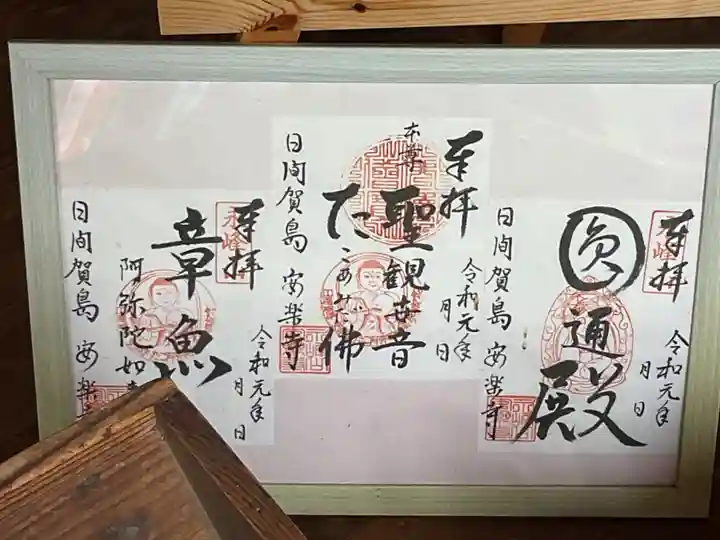 奉拝
永峰
圓通殿
令和元年
月 日
日間賀島 安楽寺
奉拝
本尊
聖観世音
たこあみだ佛
令和元年
月 日
日間賀島 安楽寺
奉拝
永峰
章魚
阿弥陀如
令和元年
月 日
日間賀島 安楽